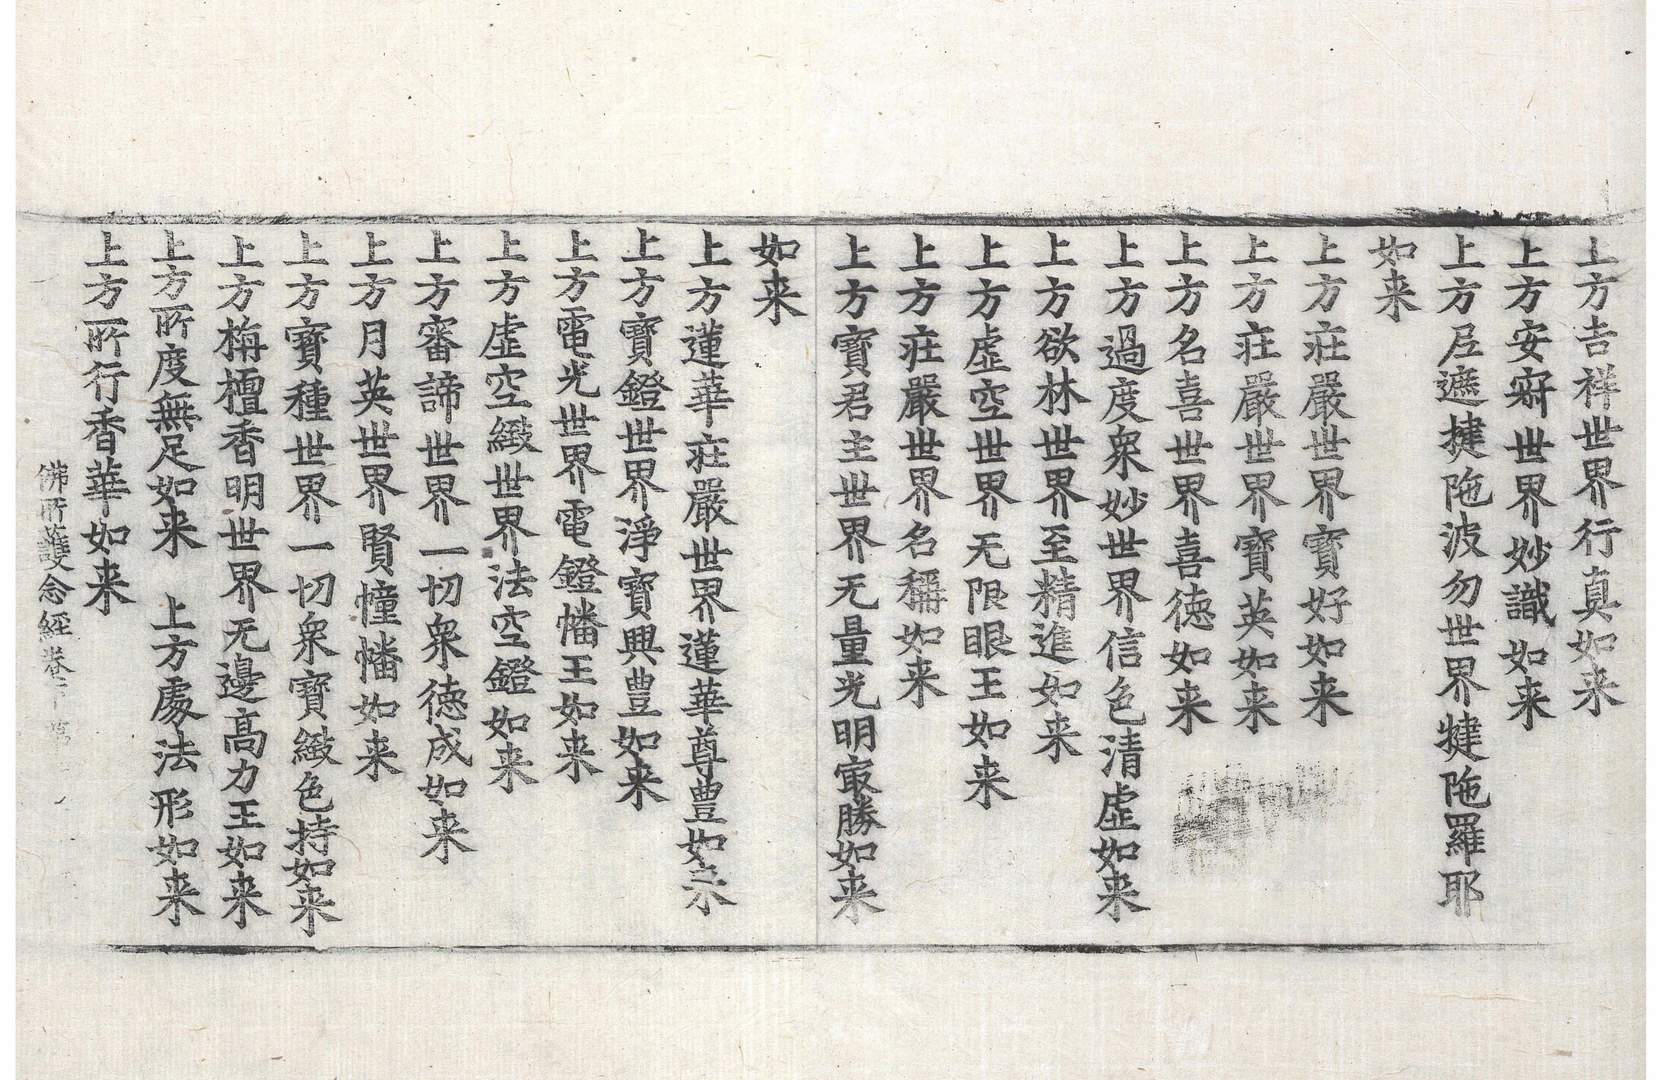 上方吉祥世界行真如来
上方安寂世界妙識如来
上方尼遮揵陁波勿世界犍陁羅耶
如来
上方莊嚴世界寶好如来
上方莊嚴世界寶英如来
上方名喜世界喜徳如来
上方過度衆妙世界信色清虛如来
上方欲林世界至精進如来
上方虛空世界无限眼王如来
上方莊嚴世界名稱如来
上方寶君主世界无量光明㝡勝如来
如来
上方蓮華莊嚴世界蓮華尊豊如来
上方寶鐙世界淨寶興豊如来
上方電光世界電鐙幡王如来
上方虛空緻世界法空鐙如来
上方審諦世界一切衆徳成如来
上方月英世界賢幢幡如来
上方寶種世界一切衆寶緻色持如来
上方栴檀香明世界无邊髙力王如来
上方所度無足如来　上方處法形如来
上方所行香華如来
佛所護念經卷下第